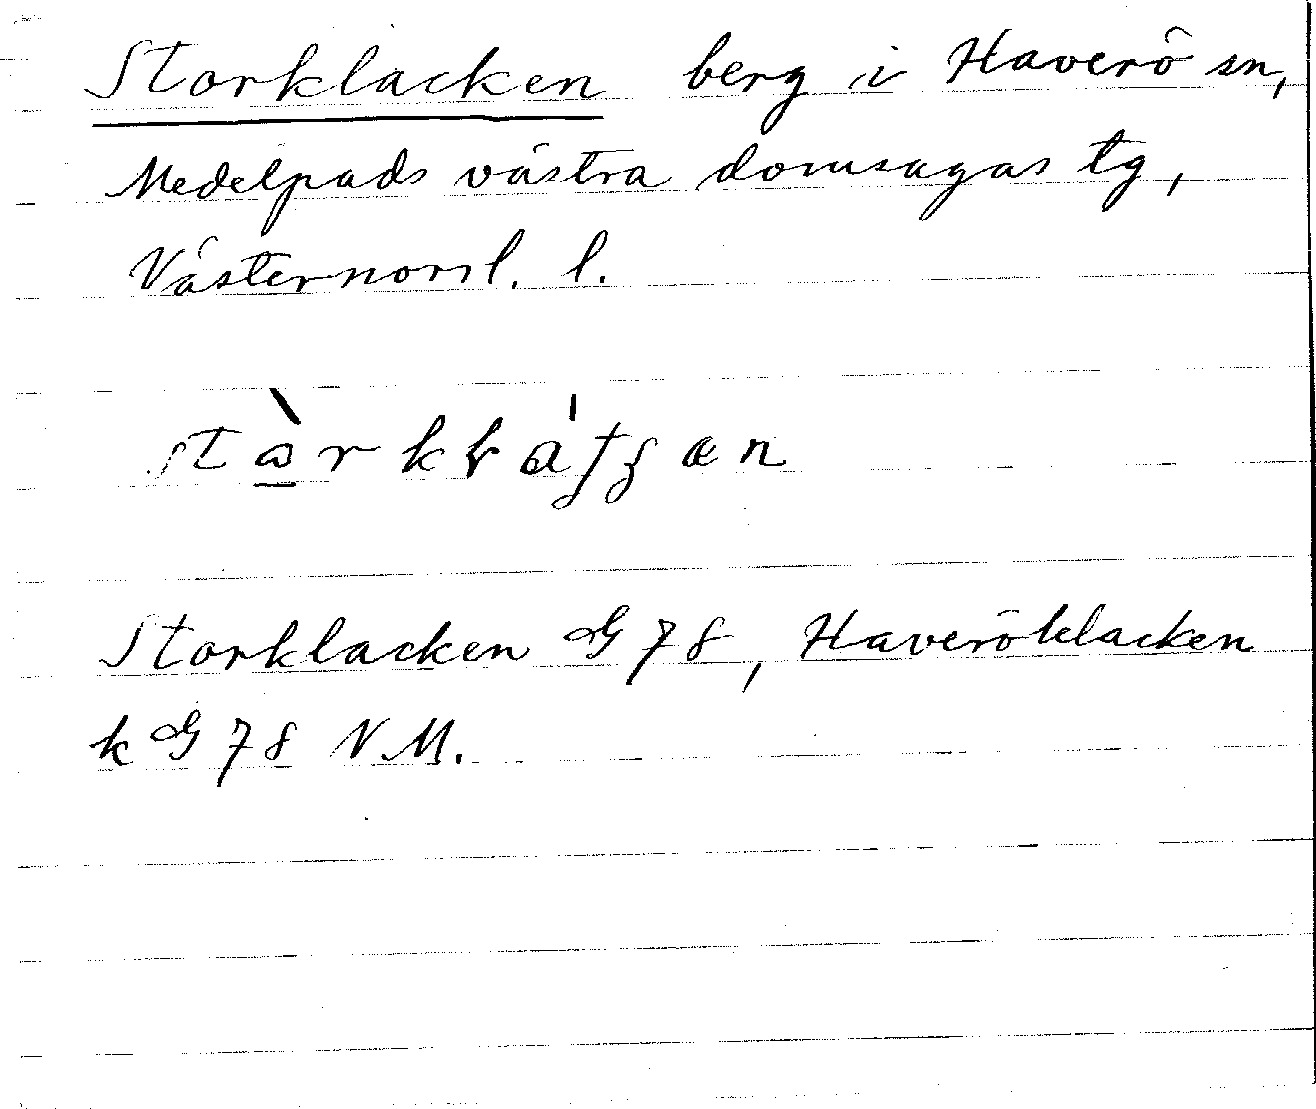 Storklacken berg i Haverö sn,
Medelpads västra domsagas tg,
Västernorrl. l.
Storklacken G 78, Haveröklacken
k G 78 NM.